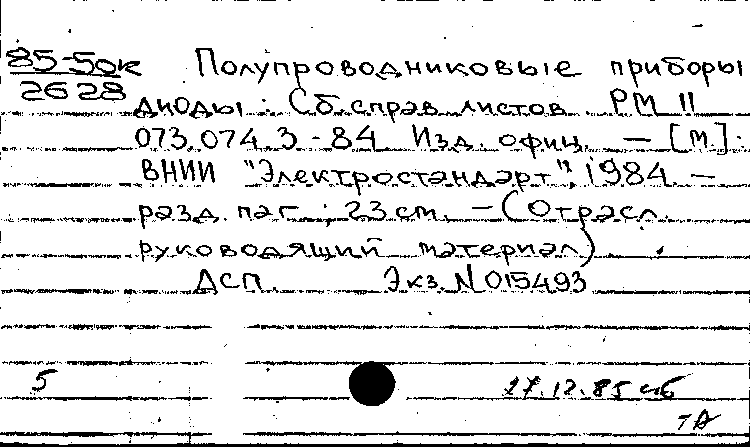 85-50к
2628
Полупроводниковые приборы
диоды: Сб.справ листов РМ 11
073.074.3-84 Изд. офиц. — [М]:
ВНИИ "Электростандарт", 1984 —
разд. паг.; 23 см. — (Отрасл.
руководящий материал)
ДСП. Экз. N 015493
5
17.12.85 иб
ТА